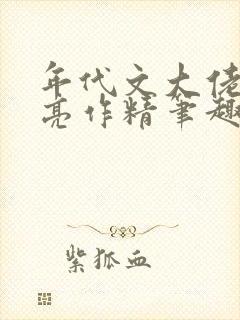 年代文大佬
亮作精筆趣
紫狐血